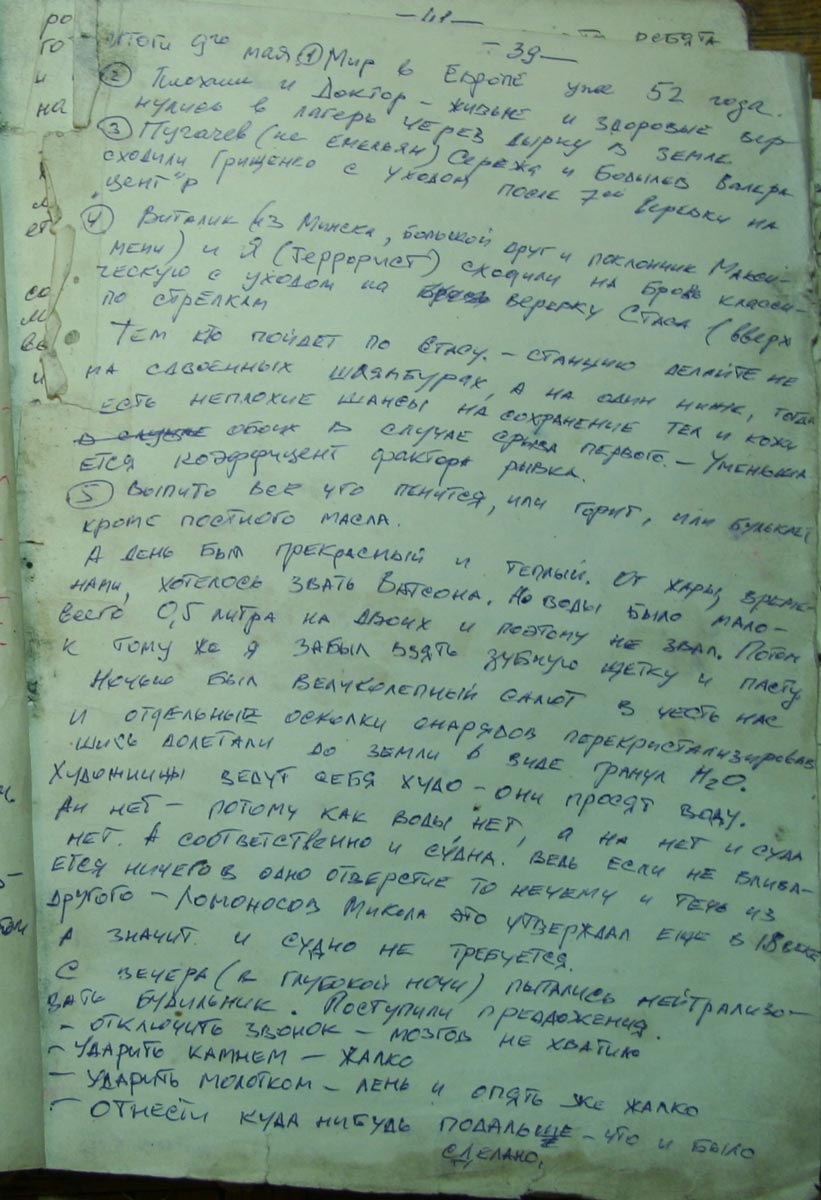 — 41 —
РЕБЯТА
— 39 —
Итоги 9го мая ① Мир в Европе уже 52 года.
② Плохиш и Доктор – живые и здоровые вер-
нулись в лагерь через дырку в земле.
③ Пугачев (не Емельян) Сережа и Бодылев Валера
сходили Грищенко с уходом после 7ой веревки на
„центр"
④ Виталик (из Минска, большой друг и поклонник Макси-
мени) и Я (террорист) сходили на Бродь класси-
ческую с уходом на веревку Стаса (вверх
по стрелкам
Тем кто пойдет по Стасу. – станцию делайте не
на сдвоенных шлямбурах, а на один ниже, тогда
есть неплохие шансы на сохранение тел и кожи
в случае обоих в случае срыва первого. – Уменьша
ется коэффицент фактора рывка.
⑤ Выпито все что пенится, или горит, или булькает
кроме постного масла.
А день был прекрасный и теплый. От жары, време-
нами, хотелось звать Ватсона. Но воды было мало –
всего 0,5 литра на двоих и поэтому не звал. Потом
к тому же я забыл взять зубную щетку и пасту
Ночью был великолепный салют в честь нас
и отдельные осколки снарядов перекристализировав
шись долетали до земли в виде гранул H₂O.
Художницы ведут себя худо – они просят воду.
Ан нет – потому как воды нет, а на нет и суда
нет. А соответственно и судна. Ведь если не влива-
ется ничего в одно отверстие то нечему и течь из
другого – Ломоносов Микола это утверждал еще в 18 веке
А значит и судно не требуется.
С вечера (в глубокой ночи) пытались нейтрализо-
вать будильник. Поступили предложения.
– отключить звонок – мозгов не хватило
– Ударить камнем – жалко
– Ударить молотком – лень и опять же жалко
– Отнести куда нибудь подальше – что и было
сделано.